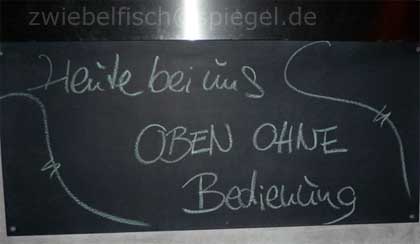 zwiebelfisch@spiegel.de
Heute bei uns
OBEN OHNE
Bedienung